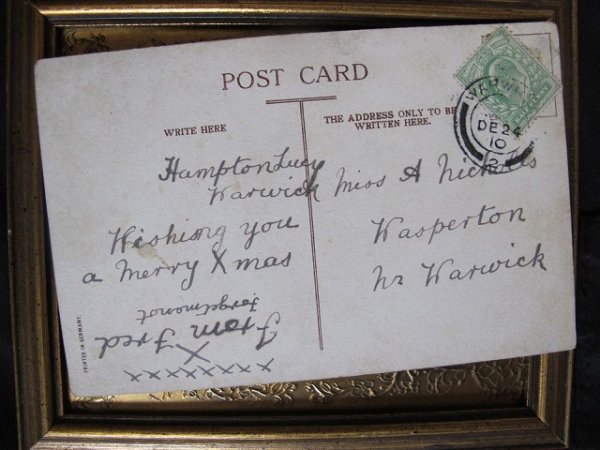 POST CARD
WRITE HERE
THE ADDRESS ONLY TO BE
WRITTEN HERE.
Hampton Lucy
Warwick
Wishing you
a Merry Xmas
From Fred
Forget me not
X
X X X X X X X X
Miss A Nicholls
Wasperton
Nr Warwick
WARWICK
DE 24
10
PRINTED IN GERMANY.